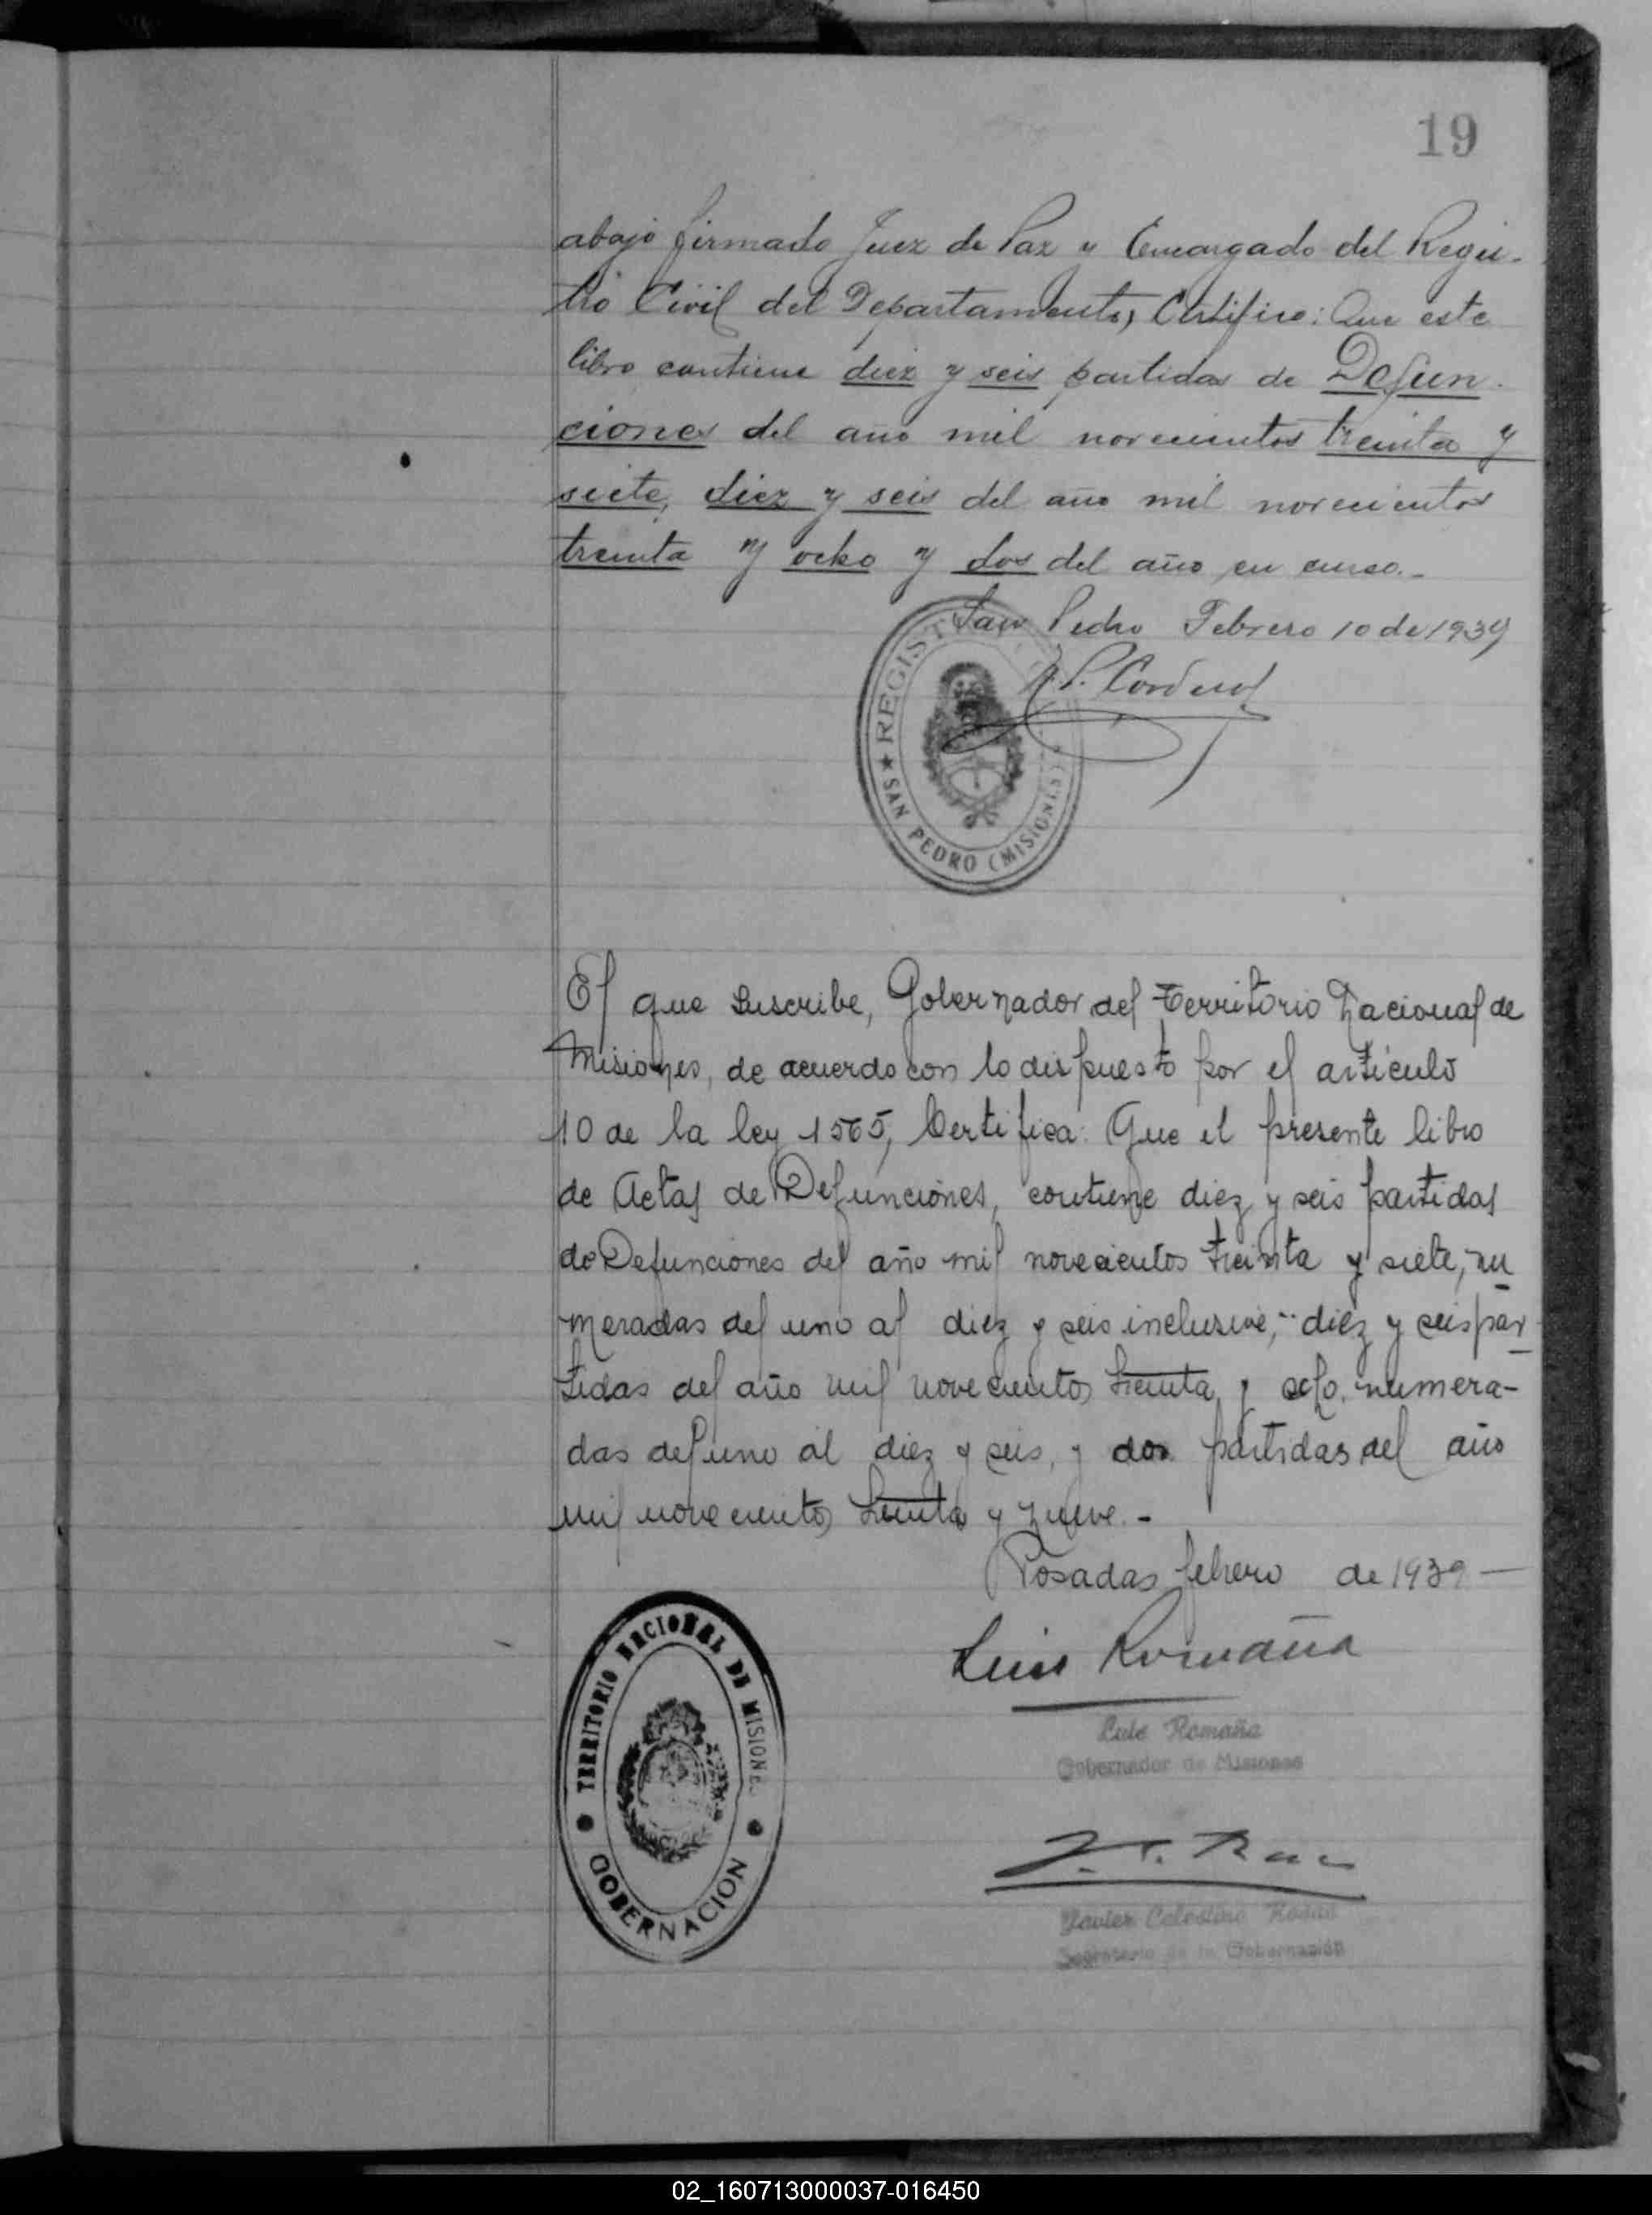 19
abajo firmado Juez de Paz y Encargado del Regis-
tro Civil del Departamento, Certifico: Que este
libro contiene diez y seis partidas de Defun-
ciones del año mil novecientos treinta y
siete, diez y seis del año mil novecientos
treinta y ocho y dos del año en curso.-
San Pedro Febrero 10 de 1939
REGIST
★ SAN PEDRO (MISIONES)
El que suscribe, Gobernador del Territorio Nacional de
Misiones, de acuerdo con lo dispuesto por el artículo
10 de la ley 1565, Certifica: Que el presente libro
de Actas de Defunciones, contiene diez y seis partidas
de Defunciones del año mil novecientos treinta y siete, nu
meradas del uno al diez y seis inclusive, diez y seis par
tidas del año mil novecientos treinta y ocho, numera-
das del uno al diez y seis, y dos partidas del año
mil novecientos treinta y nueve.-
Posadas febrero de 1939 —
TERRITORIO NACIONAL DE MISIONES
GOBERNACION
Luis Romaña
Luis Romaña
Gobernador de Misiones
Javier Celestino
Secretario de la Gobernación
02_160713000037-016450